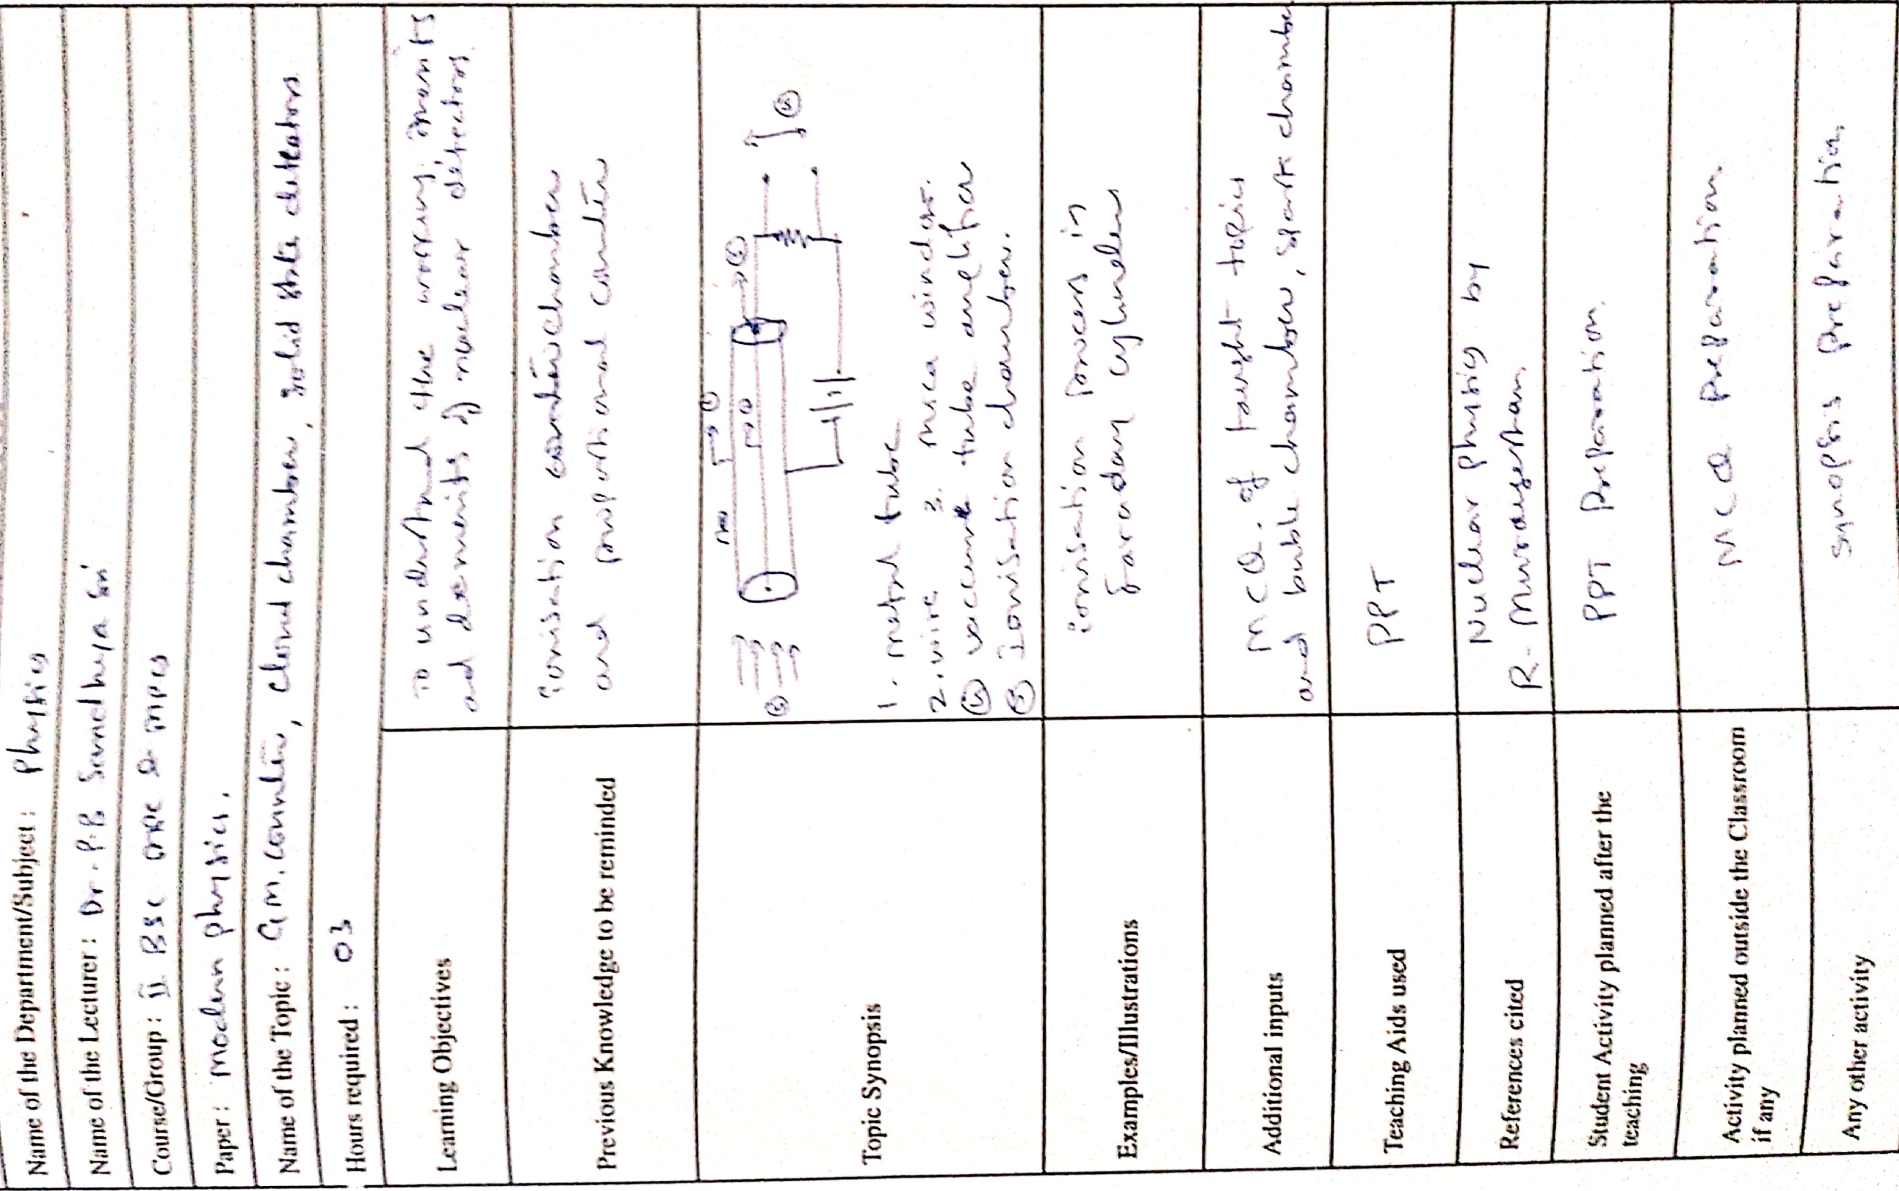 Name of the Department/Subject : Physics
Name of the Lecturer : Dr. P.B
Course/Group : II BSc & MPCs
Paper : Modern physics.
Name of the Topic : G.M. Counter, cloud chamber, solid state detectors
Hours required : 03
Learning Objectives
To understand the working, merits
and demerits of nuclear detectors
Previous Knowledge to be reminded
ionisation chamber
and proportional counter
Topic Synopsis
1. metal tube
2. wire 3. mica window.
④ vaccume tube amplifier
⑤ Ionisation chamber.
Examples/Illustrations
ionisation process in
faraday cylinder
Additional inputs
MCQ. of taught topics
and buble chamber, spark chamber
Teaching Aids used
PPT
References cited
Nuclear Physics by
R. Murugeshan
Student Activity planned after the
teaching
PPT Preparation.
Activity planned outside the Classroom
if any
MCQ preparation.
Any other activity
Synopsis preparation.